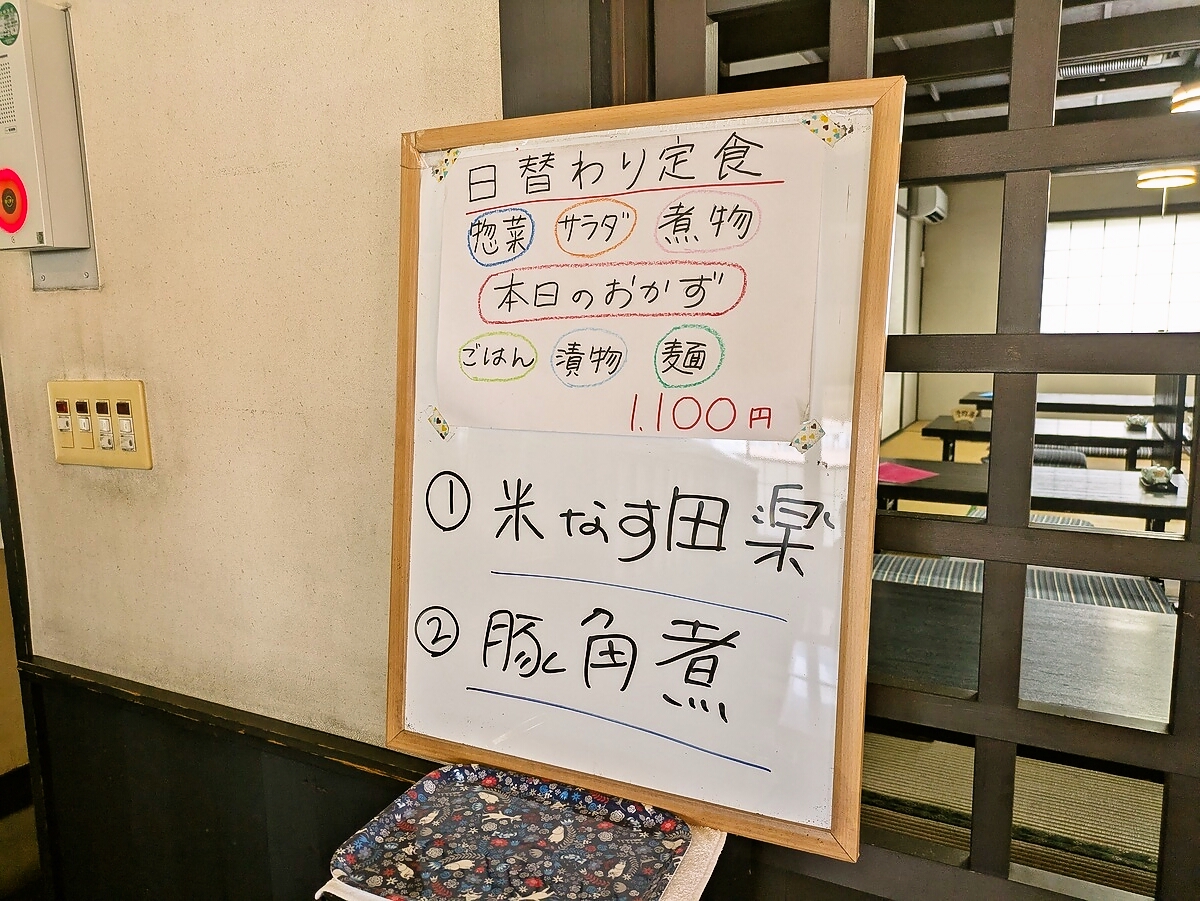 日替わり定食
惣菜 サラダ 煮物
本日のおかず
ごはん 漬物 麺
1.100円
① 米なす田楽
② 豚角煮